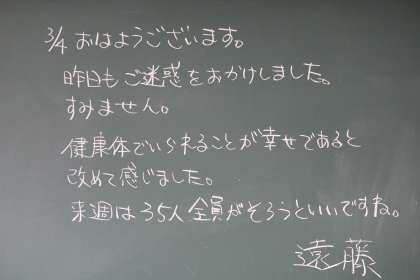 3/4 おはようございます。
昨日もご迷惑をおかけしました。
すみません。
健康体でいられることが幸せであると
改めて感じました。
来週は35人全員がそろうといいですね。
遠藤